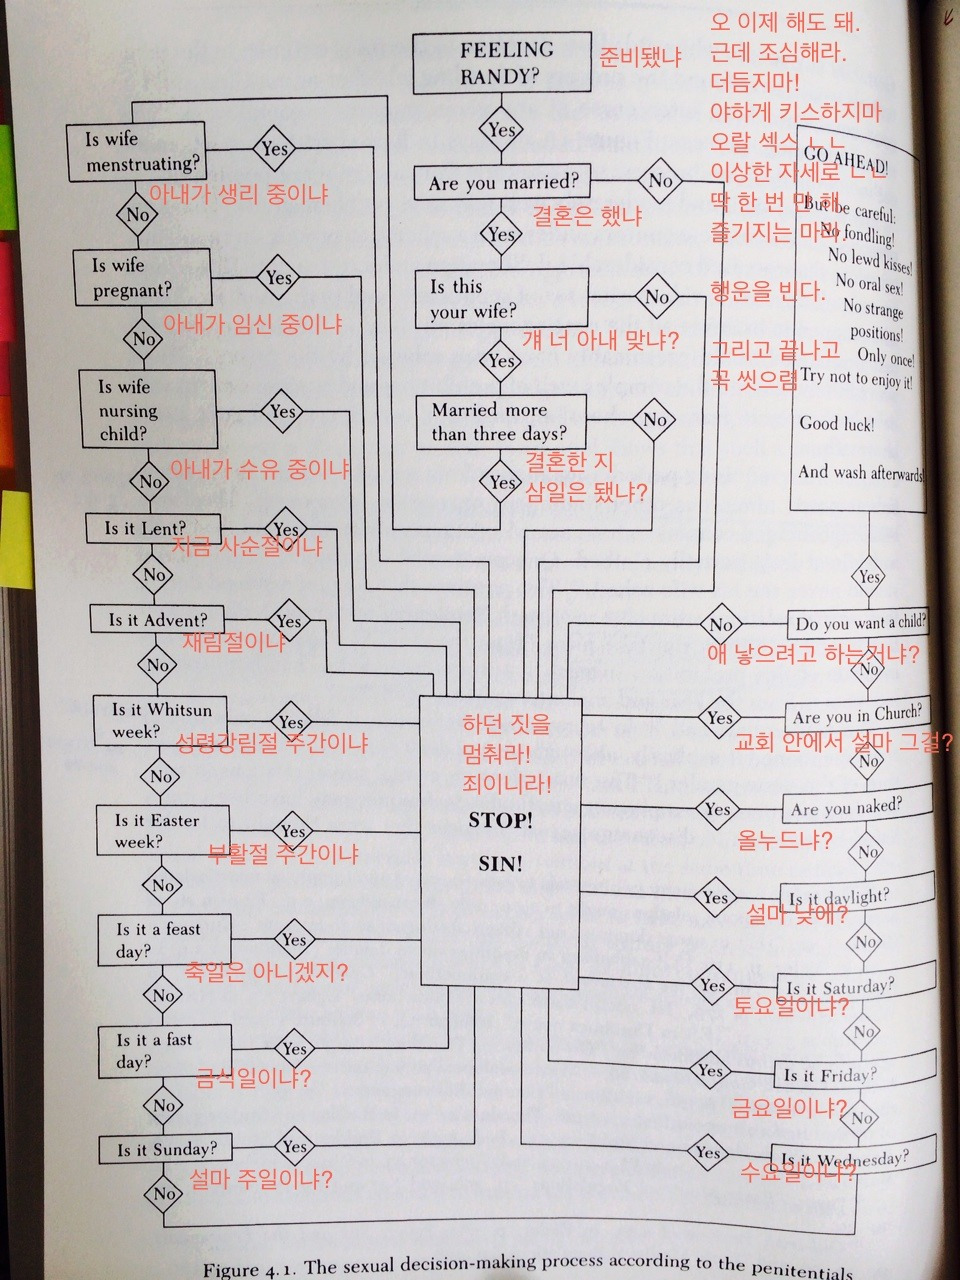 FEELING
RANDY?
준비됐냐
Yes
Are you married?
No
결혼은 했냐
Yes
Is this
your wife?
No
걔 너 아내 맞냐?
Yes
Married more
than three days?
No
결혼한 지
삼일은 됐냐?
Yes
Is wife
menstruating?
Yes
아내가 생리 중이냐
No
Is wife
pregnant?
Yes
아내가 임신 중이냐
No
Is wife
nursing
child?
Yes
아내가 수유 중이냐
No
Is it Lent?
Yes
지금 사순절이냐
No
Is it Advent?
Yes
재림절이냐
No
Is it Whitsun
week?
Yes
성령강림절 주간이냐
No
Is it Easter
week?
Yes
부활절 주간이냐
No
Is it a feast
day?
Yes
축일은 아니겠지?
No
Is it a fast
day?
Yes
금식일이냐?
No
Is it Sunday?
Yes
설마 주일이냐?
No
하던 짓을
멈춰라!
죄이니라!
STOP!
SIN!
오 이제 해도 돼.
근데 조심해라.
더듬지마!
야하게 키스하지마
오랄 섹스 ㄴㄴ
이상한 자세로 ㄴㄴ
딱 한 번 만 해
즐기지는 마라.
행운을 빈다.
그리고 끝나고
꼭 씻으렴
GO AHEAD!
But be careful:
No fondling!
No lewd kisses!
No oral sex!
No strange
positions!
Only once!
Try not to enjoy it!
Good luck!
And wash afterwards!
Yes
Do you want a child?
No
애 낳으려고 하는거냐?
No
Are you in Church?
Yes
교회 안에서 설마 그걸?
No
Are you naked?
Yes
올누드냐?
No
Is it daylight?
Yes
설마 낮에?
No
Is it Saturday?
Yes
토요일이냐?
No
Is it Friday?
Yes
금요일이냐?
No
Is it Wednesday?
Yes
수요일이냐?
Figure 4.1. The sexual decision-making process according to the penitentials